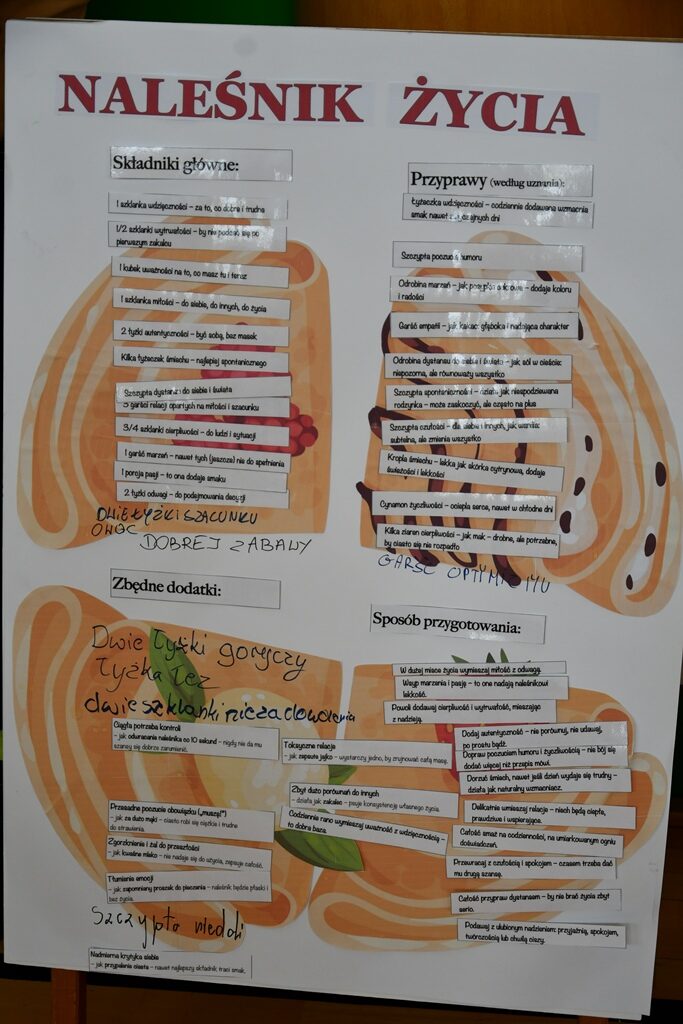 NALEŚNIK ŻYCIA
Składniki główne:
1 szklanka wdzięczności – za to, co dobre i trudne
1/2 szklanki wytrwałości – by nie poddać się po
pierwszym zakalcu
1 kubek uważności na to, co masz tu i teraz
1 szklanka miłości – do siebie, do innych, do życia
2 łyżki autentyczności – być sobą, bez masek
Kilka łyżeczek śmiechu – najlepiej spontanicznego
Szczypta dystansu do siebie i świata
3 garści relacji opartych na miłości i szacunku
3/4 szklanki cierpliwości – do ludzi i sytuacji
1 garść marzeń – nawet tych (jeszcze) nie do spełnienia
1 porcja pasji – to ona dodaje smaku
2 łyżki odwagi – do podejmowania decyzji
DWIE ŁYŻKI SZACUNKU
OWOC DOBREJ ZABAWY
Przyprawy (według uznania):
Łyżeczka wdzięczności – codziennie dodawana wzmacnia
smak nawet zwyczajnych dni
Szczypta poczucia humoru
Odrobina marzeń – jak posypka cukrowa – dodaje koloru
i radości
Garść empatii – jak kakao: głęboka i nadająca charakter
Odrobina dystansu do siebie i świata – jak sól w cieście:
niepozorna, ale równoważy wszystko
Szczypta spontaniczności – działa jak niespodziewana
rodzynka – może zaskoczyć, ale często na plus
Szczypta czułości – dla siebie i innych, jak wanilia:
subtelna, ale zmienia wszystko
Kropla śmiechu – lekka jak skórka cytrynowa, dodaje
świeżości i lekkości
Cynamon życzliwości – ociepla serce, nawet w chłodne dni
Kilka ziaren cierpliwości – jak mak – drobne, ale potrzebne,
by ciasto się nie rozpadło
GARŚĆ OPTYMIZMU
Zbędne dodatki:
Dwie łyżki goryczy
Łyżka łez
dwie szklanki niezadowolenia
Ciągła potrzeba kontroli
– jak odwracanie naleśnika co 10 sekund – nigdy nie da mu
szansy się dobrze zarumienić.
Toksyczne relacje
– jak zepsute jajko – wystarczy jedno, by zrujnować całą masę.
Zbyt dużo porównań do innych
– działa jak zakalec – psuje konsystencję własnego życia.
Przesadne poczucie obowiązku („muszę!”)
– jak za dużo mąki – ciasto robi się ciężkie i trudne
do strawienia.
Codziennie rano wymieszaj uważność z wdzięcznością –
to dobra baza.
Zgorzknienia i żal do przeszłości
– jak kwaśne mleko – nie nadaje się do użycia, zepsuje całość.
Tłumienie emocji
– jak zapomniany proszek do pieczenia – naleśnik będzie płaski i
bez życia.
Szczypta nudy
Nadmierna krytyka siebie
– jak przypalenie ciasta – nawet najlepszy składnik traci smak.
Sposób przygotowania:
W dużej misce życia wymieszaj miłość z odwagą.
Wsyp marzenia i pasję – to one nadają naleśnikowi
lekkość.
Powoli dodawaj cierpliwość i wytrwałość, mieszając
z nadzieją.
Dodaj autentyczność – nie porównuj, nie udawaj,
po prostu bądź.
Dopraw poczuciem humoru i życzliwością – nie bój się
dodać więcej niż przepis mówi.
Dorzuć śmiech, nawet jeśli dzień wydaje się trudny –
działa jak naturalny wzmacniacz.
Delikatnie umieszaj relacje – niech będą ciepłe,
prawdziwe i wspierające.
Całość smaż na codzienności, na umiarkowanym ogniu
doświadczeń.
Przewracaj z czułością i spokojem – czasem trzeba dać
mu drugą szansę.
Całość przypraw dystansem – by nie brać życia zbyt
serio.
Podawaj z ulubionym nadzieniem: przyjaźnią, spokojem,
twórczością lub chwilą ciszy.